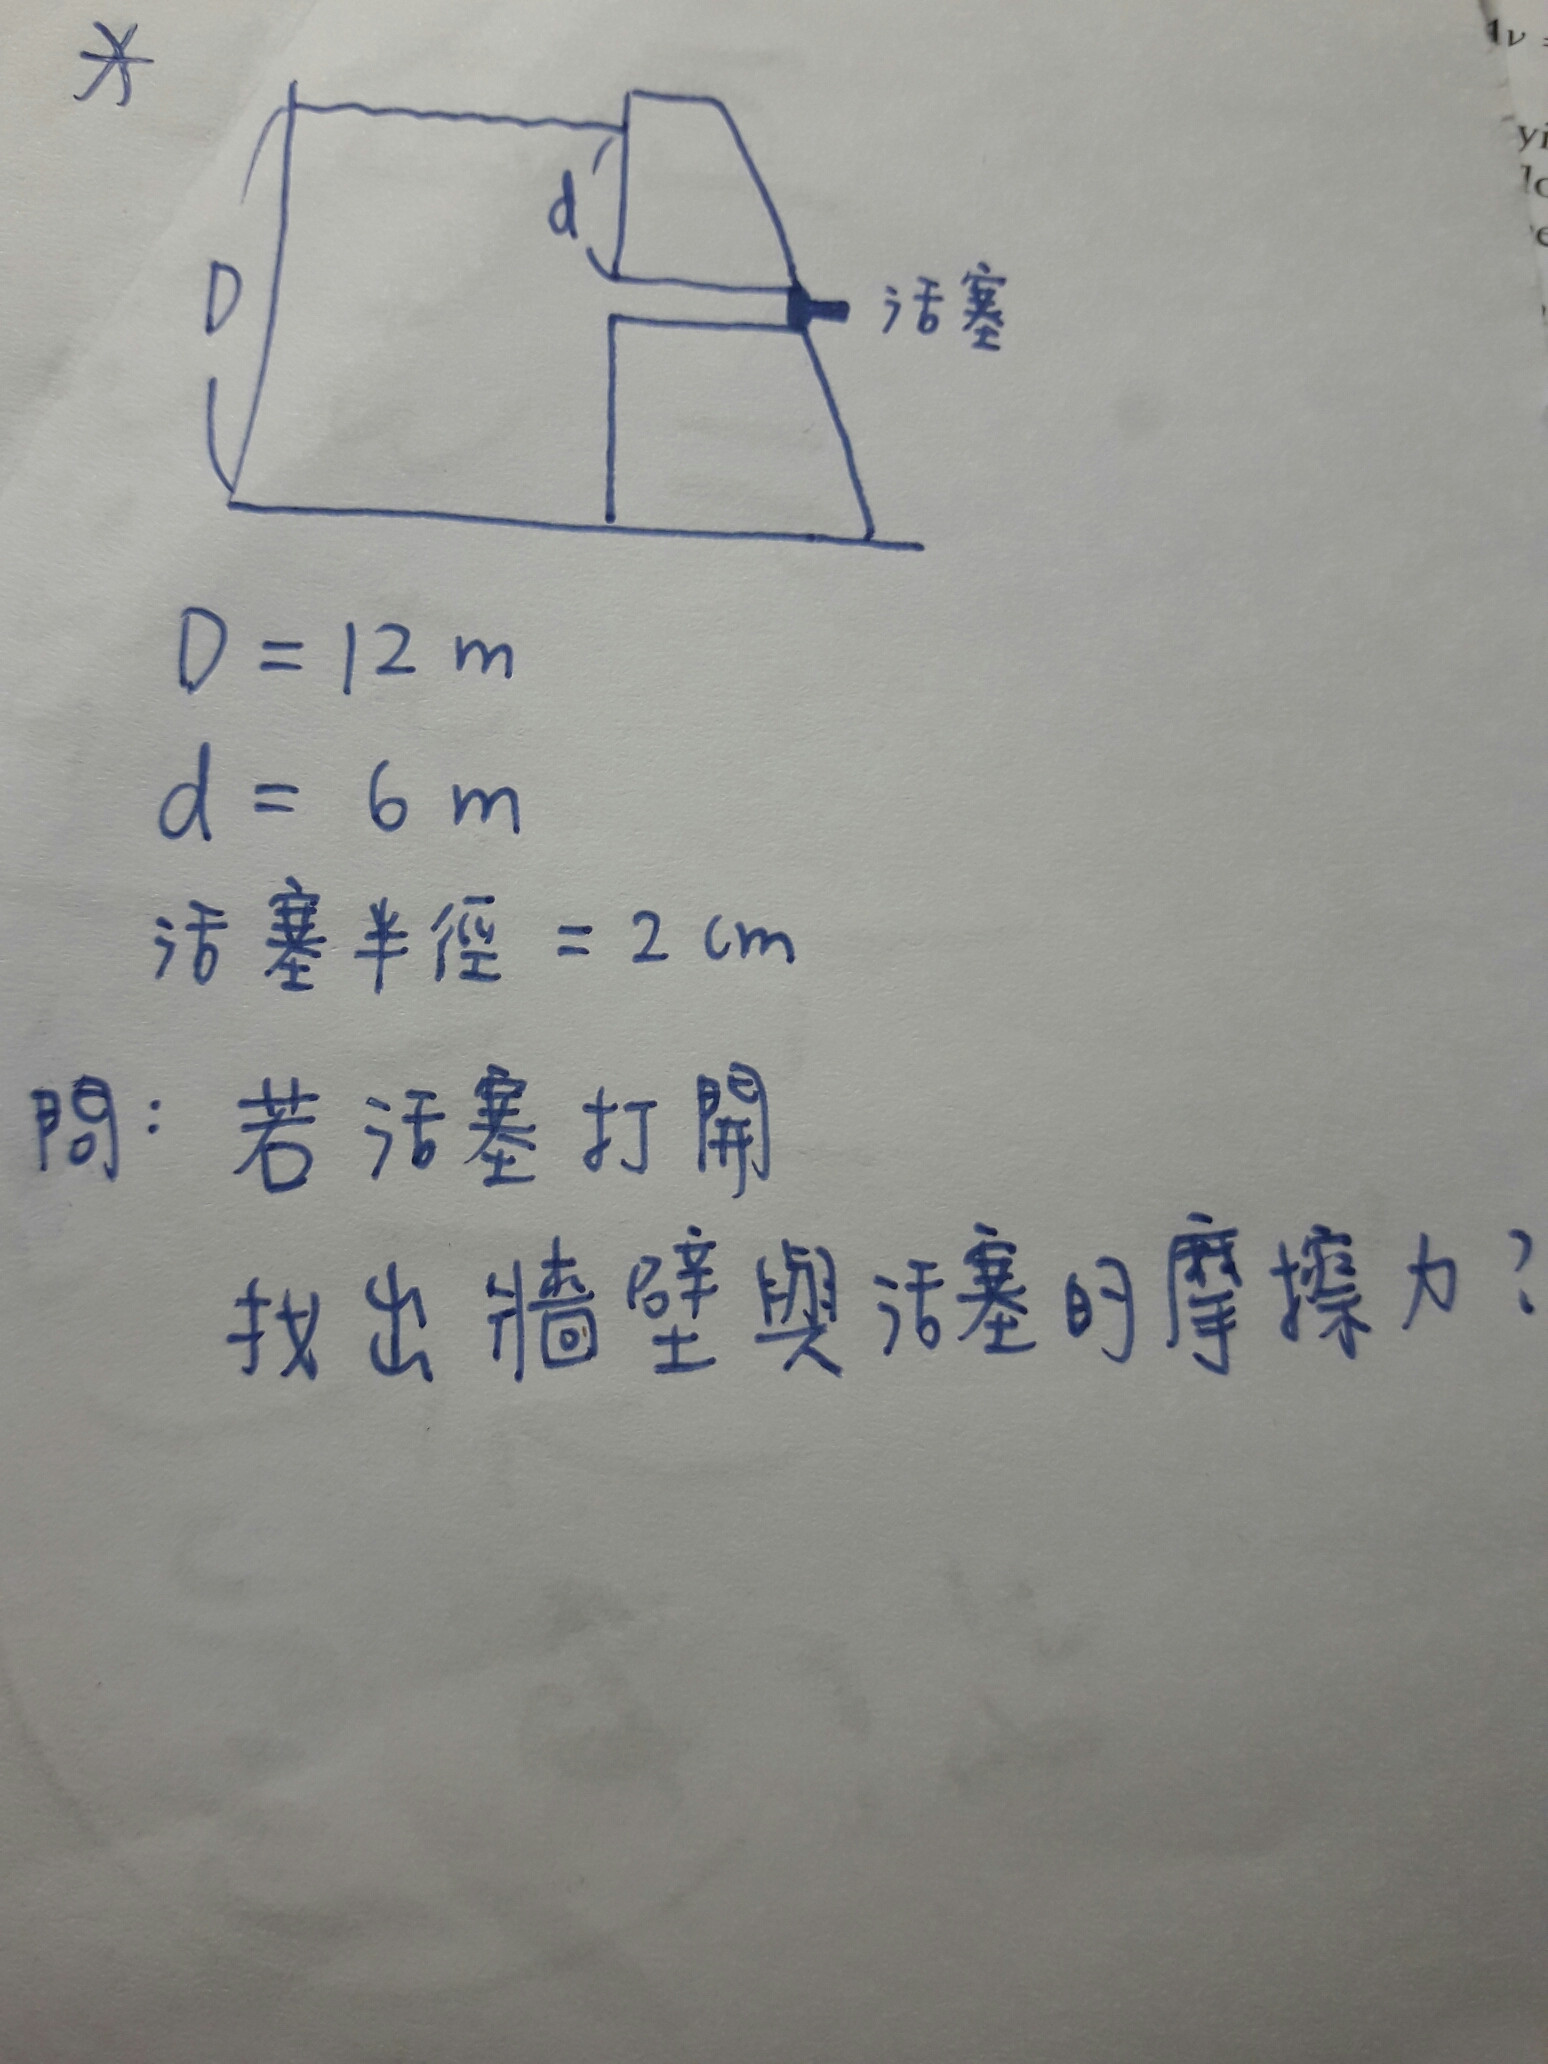 d
D
活塞
D = 12 m
d = 6 m
活塞半徑 = 2 cm
問: 若活塞打開
找出牆壁與活塞的摩擦力?